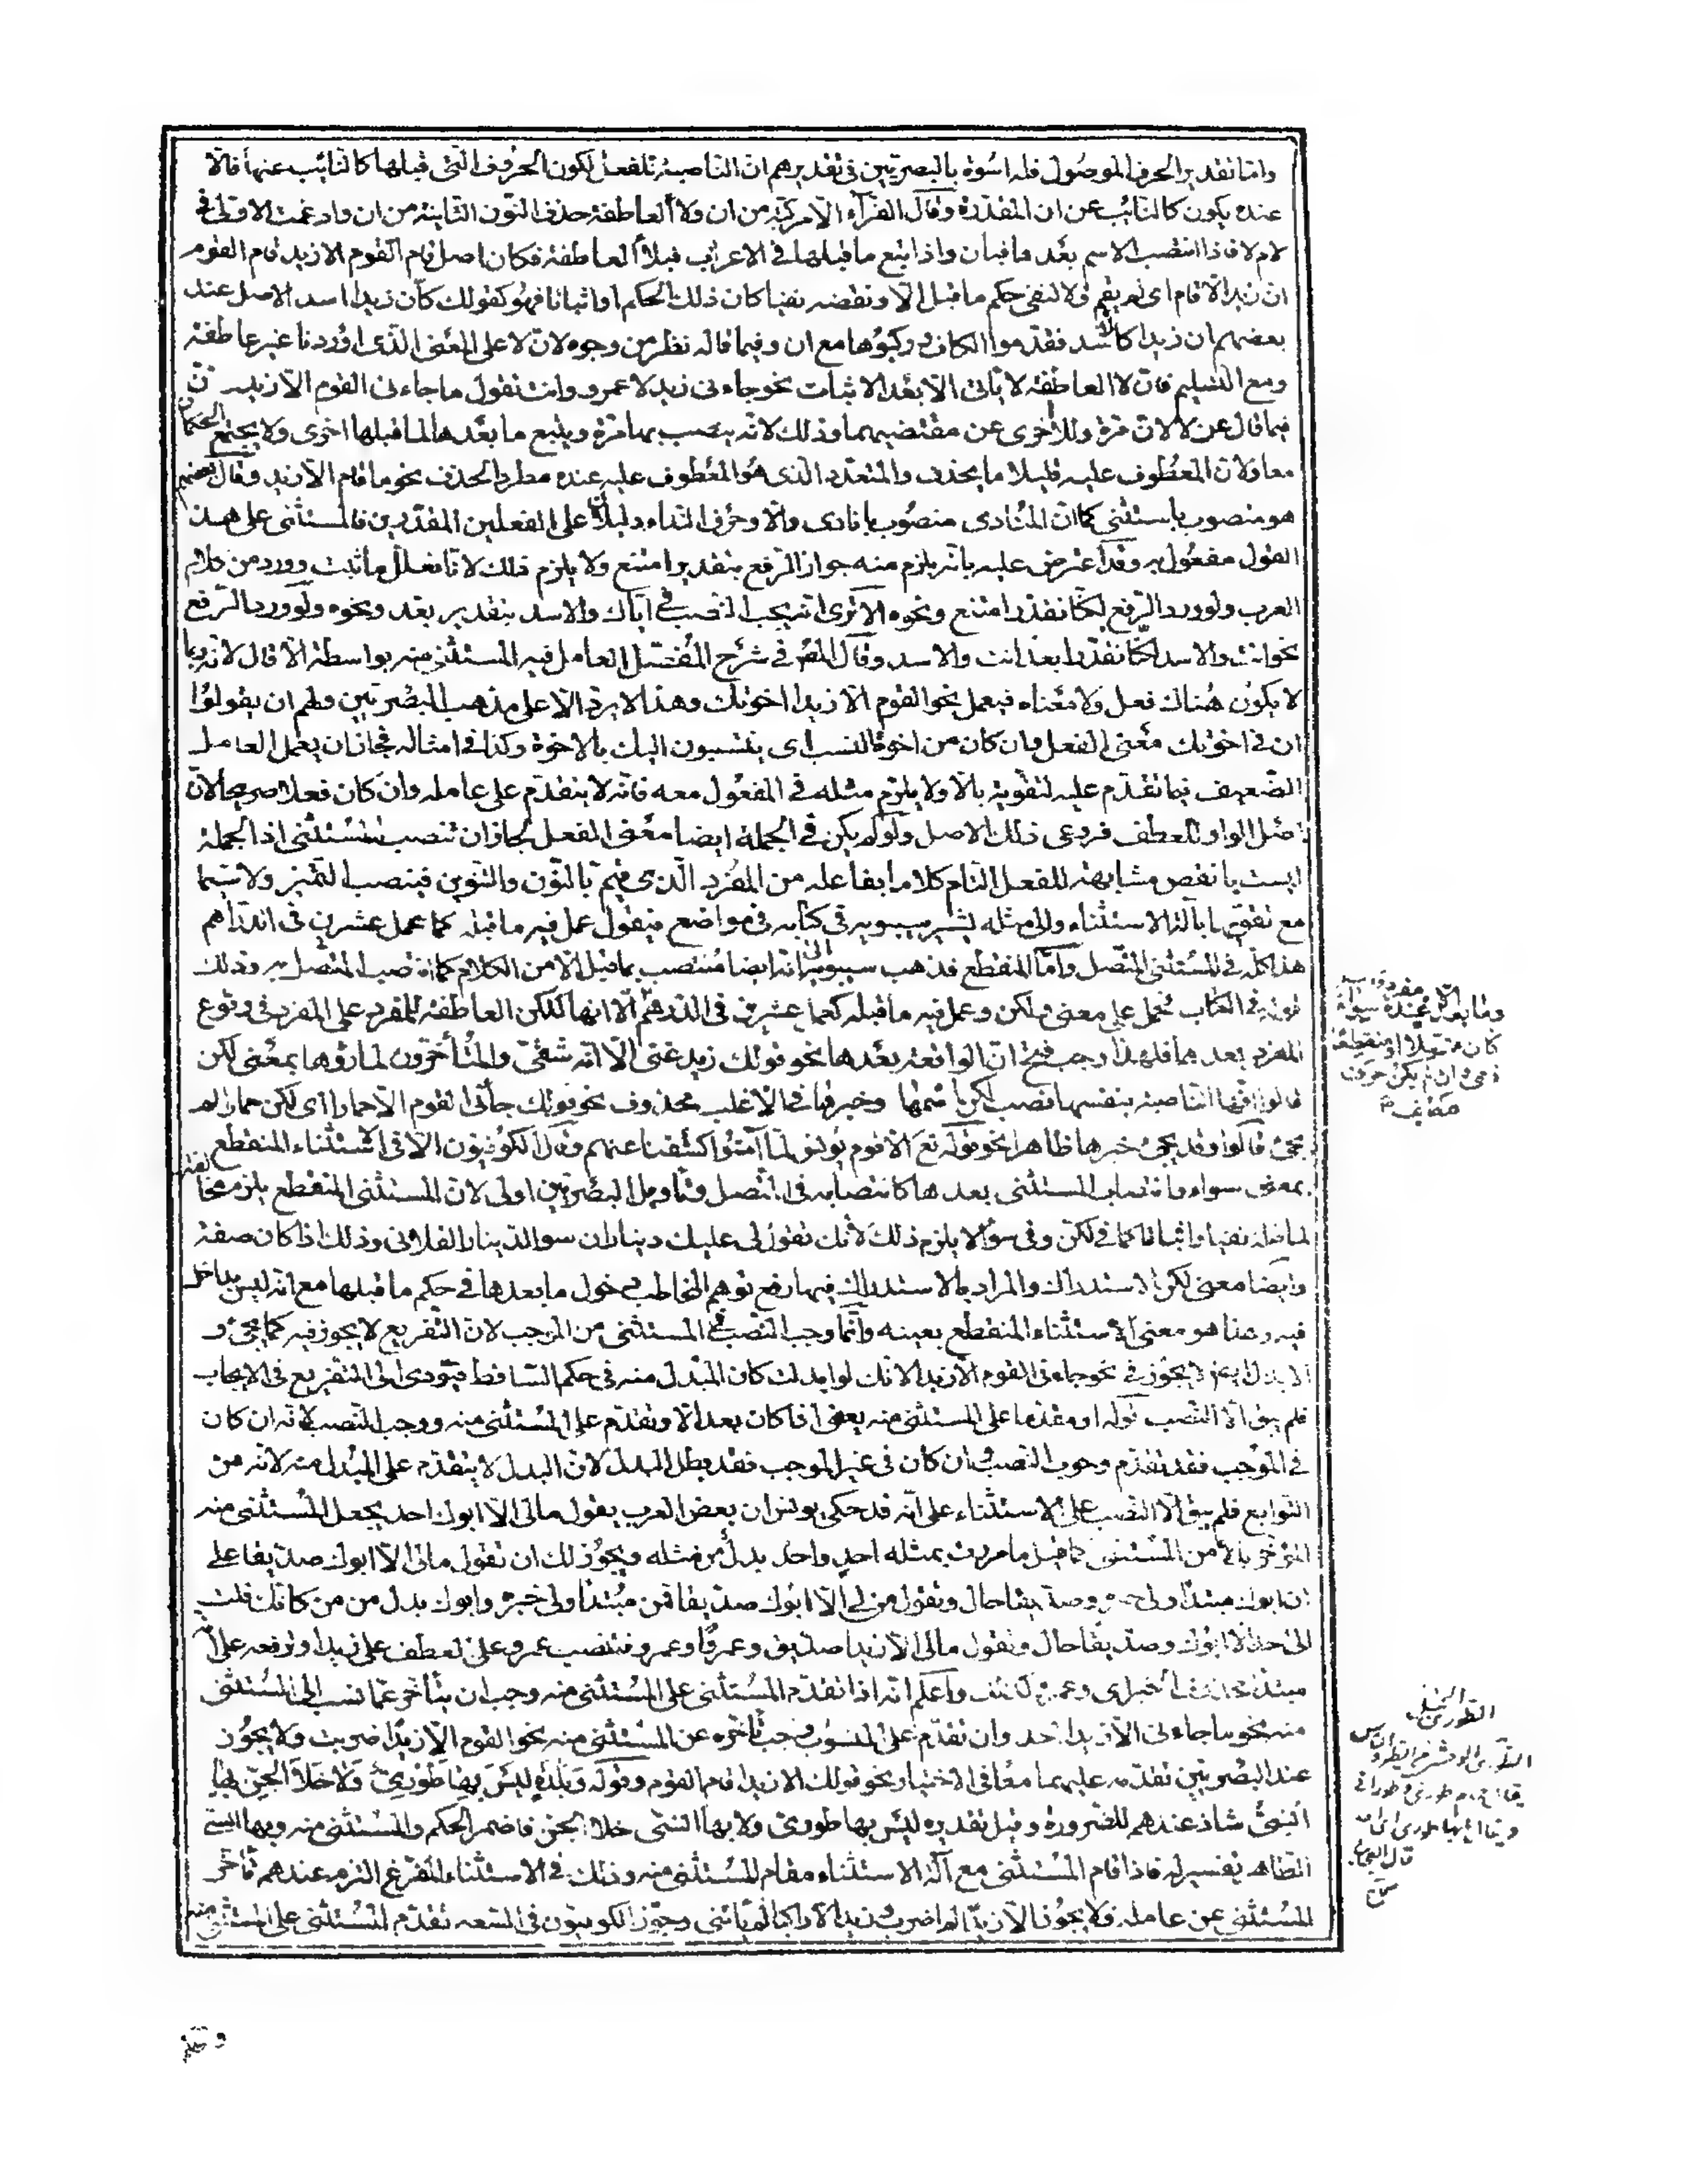 وامّا تقدير الحرف الموصول فله اسوة بالبصريّين فى تقديرهم ان الناصبة للفعل لكون الحروف التى قبلها كالنايب عنها فالّا
عنده يكون كالنائب عن ان المقدّرة وقال الفرّاء الّا مركّبة من انّ ولا العاطفة حذف النون الثانية من انّ وادغمت الاولى فى
لام لا فاذا انتصب الاسم بعد ما فبان واذا اتبع ما قبلها فى الاعراب فبلا العاطفة فكان اصل قام القوم الا زيد قام القوم
ان زيدا لا قام اى لم يقم ولا لنفى حكم ما قبل الّا ونقضه نفيا كان ذلك الحكم او اثباتا فهو كقولك كأن زيدا اسد الاصل عند
بعضهم ان زيدا كاسد فقدّموا الكاف وركبوها مع ان وفيما قاله نظر من وجوه لان لا على المعنى الذى اورده غير عاطفة
ومع التسليم فان لا العاطفة لا تاتى الّا بعد الاثبات نحو جاءنى زيد لا عمرو وانت تقول ما جاءنى القوم الّا زيد
فيما قال عزلا لانّ مرّة وللا اخرى عن مقتضيهما وذلك لانه ينصب بها مرّة ويتبع ما بعدها لما قبلها اخرى ولا يجتمع الحكمان
معا ولان المعطوف عليه قليلا ما يحذف والمتعدّد الذى هو المعطوف عليه عنده مطرد الحذف نحو ما قام الّا زيد وقال بعضهم
هو منصوب باستثنى كما ان المنادى منصوب بانادى والّا وحرف النداء دليلان على الفعلين المقدّرين فالمستثنى على هذا
القول مفعول به وقد اعترض عليه بانه يلزم منه جواز الرفع بتقدير امتنع ولا يلزم ذلك لانا نعلل ما ثبت وورد من كلام
العرب ولو ورد الرفع لكنّا نقدّر امتنع ونحوه الا ترى انه يجب النصب فى ايّاك والاسد بتقدير بعّد ونحوه ولو ورد الرفع
نحو انت والاسد لكنّا نقدّر ابعد انت والاسد وقال المص فى شرح المفصّل العامل فيه المستثنى منه بواسطة الّا قال لانه ربما
لا يكون هناك فعل ولا معناه فيعمل نحو القوم الّا زيدا اخوتك وهذا لا يرد الّا على مذهب البصريين ولهم ان يقولوا
ان فى اخوتك معنى الفعل وان كان من اخوة النسب اى ينتسبون اليك بالاخوة وكذا فى امثاله فجاز ان يعمل العامل
الضعيف فيما تقدّم عليه لتقويته بالّا ولا يلزم مثله فى المفعول معه فانه لا يتقدّم على عامله وان كان فعلا صريحا لان
اصل الواو للعطف فروعى ذلك الاصل ولو لم يكن فى الجملة ايضا معنى الفعل لجاز ان تنصب المستثنى اذ الجملة
ليست بانقص مشابهة للفعل التام كلاما بفاعله من المفرد الذى يتم بالنون والتنوين فينصب التمييز ولا سيّما
مع تقويها بآلة الاستثناء والى مثله يشير سيبويه فى كتابه فى مواضع فيقول عمل فيه ما قبله كما عمل عشرين فى الدراهم
هذا كله فى المستثنى المتصل وامّا المنقطع فذهب سيبويه الى انه ايضا منتصب بما قبل الّا من الكلام كما انتصب المتصل به وذلك
قوله فى الكتاب يحمل على معنى ولكن وعمل فيه ما قبله كعمل عشرين فى الدرهم الّا انها كلكن العاطفة للمفرد على المفرد فى وقوع
المفرد بعدها فلهذا وجب فتح ان الواقعة بعدها نحو قولك زيد غنى الّا انه شقىّ والمتأخرون لما رأوها بمعنى لكن
قالوا انها الناصبة بنفسها نصب لكن اسمها وخبرها فى الاغلب محذوف نحو قولك جاءنى القوم الّا حمارا اى لكن حمارا لم
يجئ قالوا وقد يجئ خبرها ظاهرا نحو قوله تع الّا قوم يونس لما آمنوا كشفنا عنهم وقال الكوفيون الّا فى الاستثناء المنقطع
بمعنى سواء وانتصاب المستثنى بعدها كانتصابه فى المتصل وتاويل البصريين اولى لان المستثنى المنقطع يلزم مخالفته
لما قبله نفيا واثباتا كما فى لكن وفى سوا لا يلزم ذلك لانك تقول لى عليك ديناران سوا الدينار الفلانى وذلك اذا كان صفة
وايضا معنى لكن الاستدراك والمراد بالاستدراك فيها رفع توهم المخاطب دخول ما بعدها فى حكم ما قبلها مع انه ليس بداخل
فيه وهذا هو معنى الاستثناء المنقطع بعينه وانّما وجب النصب فى المستثنى من الموجب لان التفريغ لا يجوز فيه كما يجئ و
الابدال ايضا لا يجوز فى نحو جاءنى القوم الّا زيدا لانك لو ابدلت كان المبدل منه فى حكم الساقط فيؤدى الى التفريغ فى الايجاب
فلم يبق الّا النصب قوله او مقدّما على المستثنى منه يعنى اذا كان بعد الّا وتقدّم على المستثنى منه وجب النصب لانه ان كان
فى الموجب فقد تقدّم وجوب النصب وان كان فى غير الموجب فقد بطل البدل لان البدل لا يتقدّم على المبدل منه لانه من
التوابع فلم يبق الّا النصب على الاستثناء على انه قد حكى يونس ان بعض العرب يقول مالى الّا ابوك احد يجعل المستثنى منه
المؤخر بدلا من المستثنى كما قيل ما مررت بمثله احد واحد بدل من مثله ويجوز لك ان تقول مالى الّا ابوك صديقا على
ان ابوك مبتدأ ولى خبره وصديقا حال وتقول من لى الّا ابوك صديقا فمن مبتدأ ولى خبره وابوك بدل من من كانك قلت
الى احد الّا ابوك وصديقا حال وتقول مالى الّا زيدا صديق وعمرًا وعمرو فتنصب عمرو على العطف على زيدا وترفعه على انه
مبتدأ محذوف الخبر اى وعمرو كذلك واعلم انه اذا تقدّم المستثنى على المستثنى منه وجب ان يتأخر عمّا نسب الى المستثنى
منه نحو ما جاءنى الّا زيدا احد وان تقدّم على المنسوب وجب تأخره عن المستثنى منه نحو القوم الّا زيدا ضربت ولا يجوز
عند البصريين تقدّمه عليهما معا فى الاختيار نحو قولك الّا زيدا قام القوم وقوله وبلدة ليس بها طورىّ ولا خلا الجن بها
انسىّ شاذ عندهم للضرورة وقيل تقديره ليس بها طورى ولا بها انسى خلا الجن فاضمر الحكم والمستثنى منه وبها انسى
الظاهر تفسير له فاذا قام المستثنى مع آلة الاستثناء مقام المستثنى منه وذلك فى الاستثناء المفرغ التزم عندهم تأخر
المستثنى عن عامله ولا يجوز الّا زيدا لم اضرب وزيد الّا راكبا لم ياتنى وجوّز الكوفيون فى السعة تقدّم المستثنى على المستثنى منه
وما بعد الّا عنده مفرد سواء
كان متصلا او منقطعا
وان لم يكن حرف